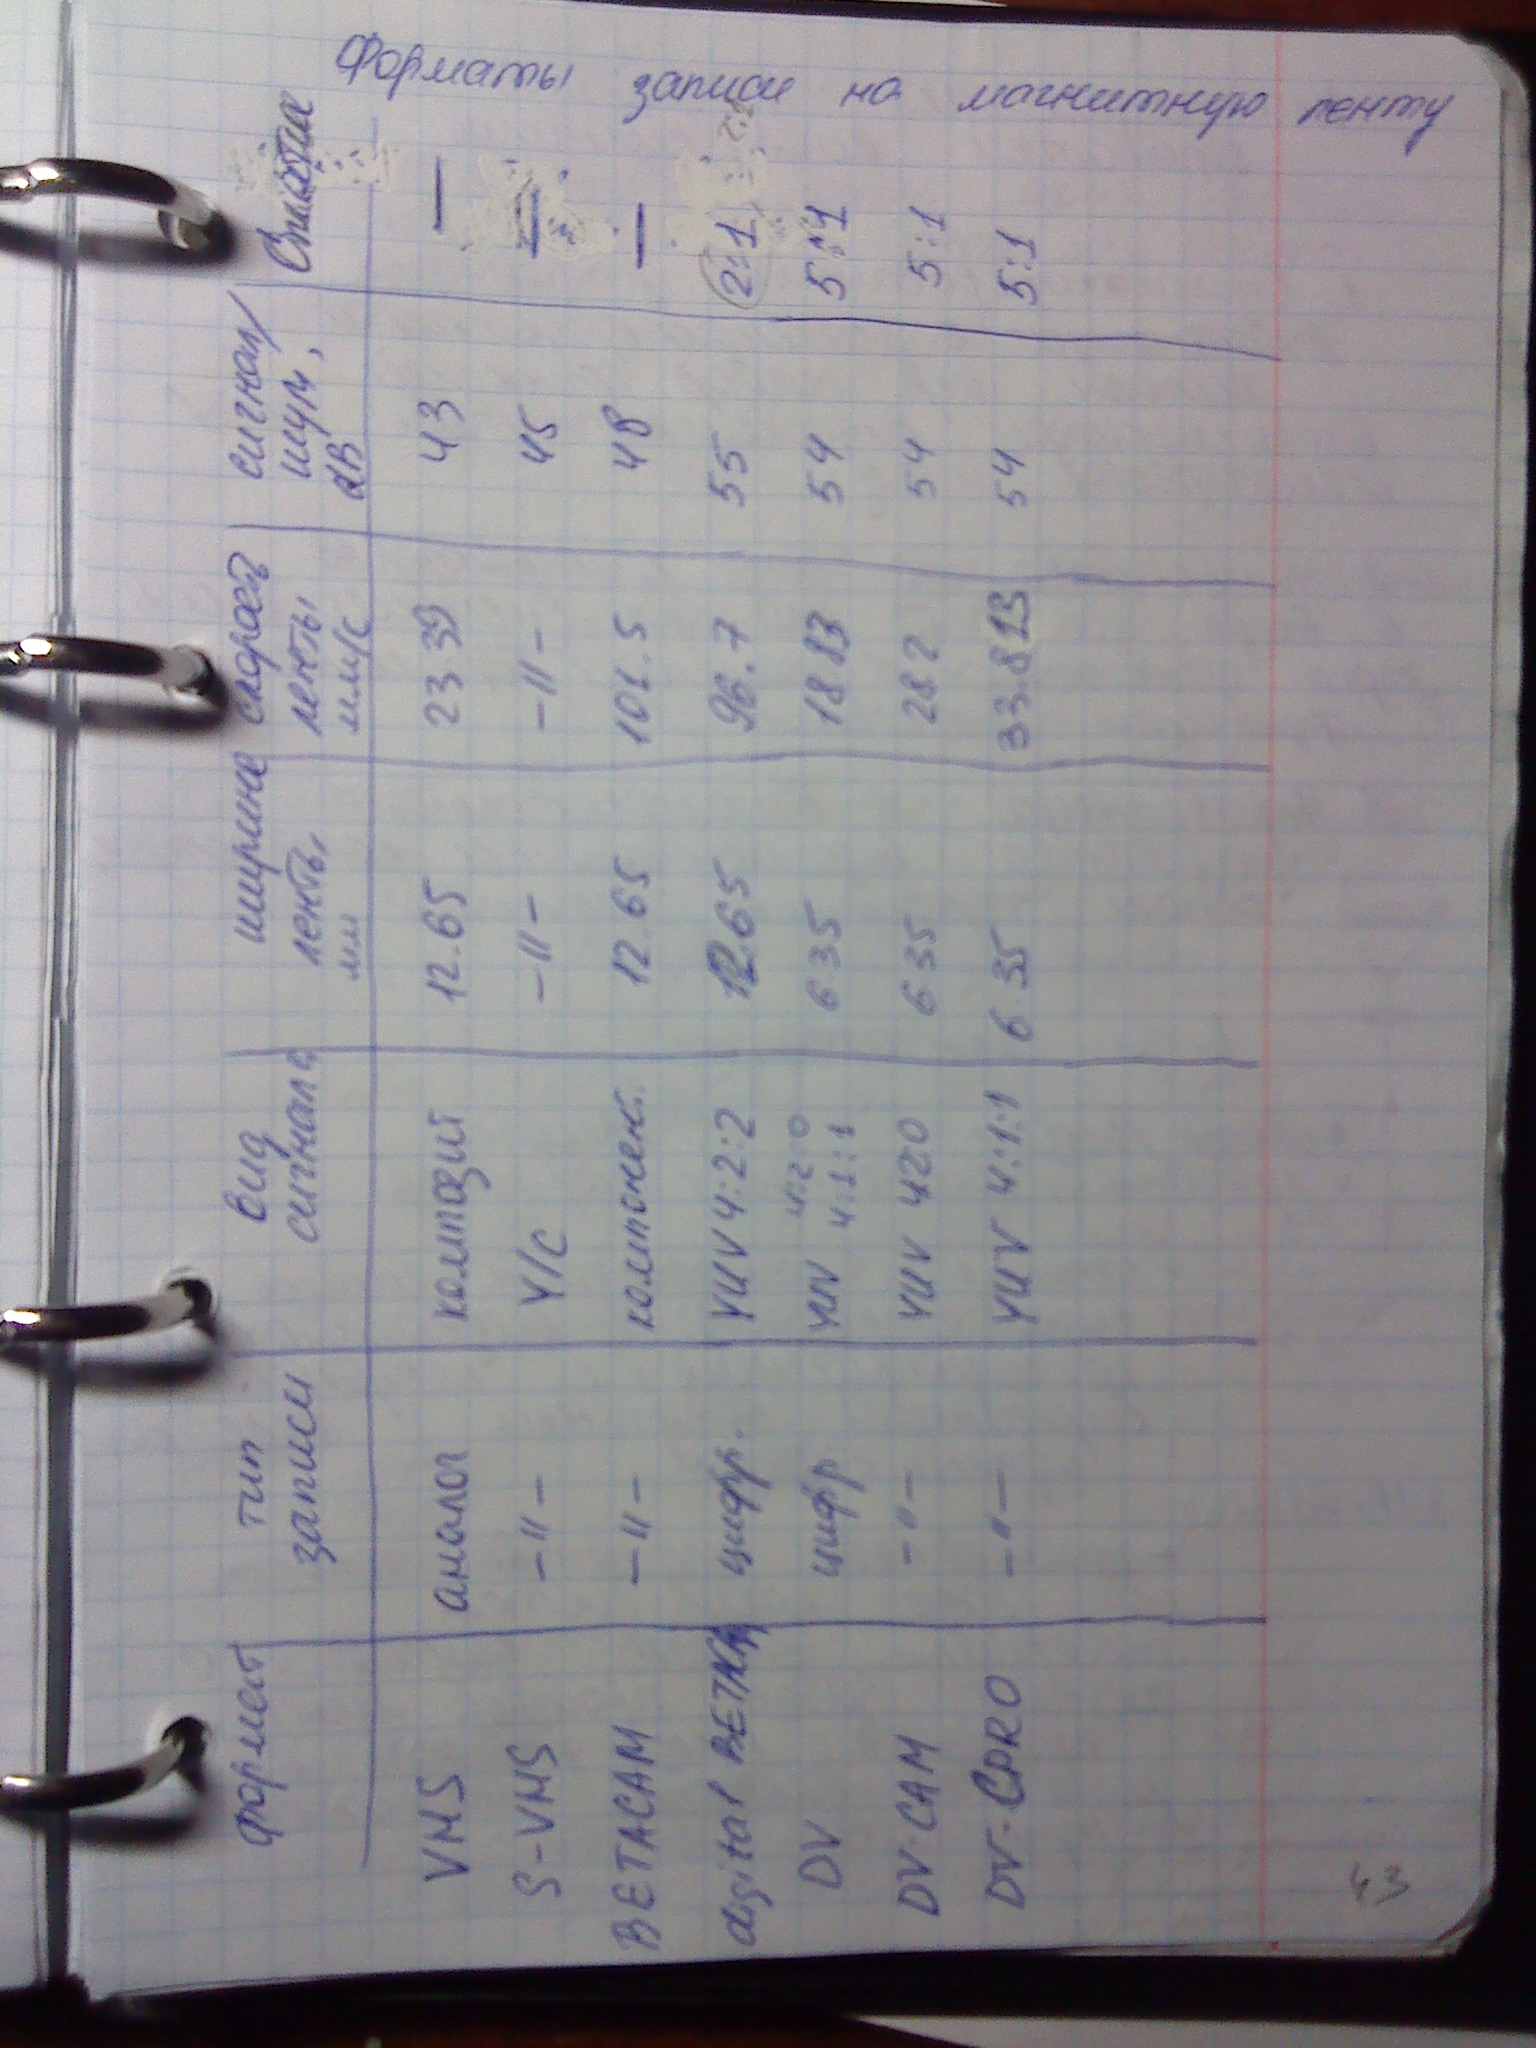 Форматы записи на магнитную ленту
формат тип записи вид сигнала ширина ленты, мм скорость ленты мм/с сигнал/шум, dB Сжатие
VHS аналог композит 12.65 23.39 43 —
S-VHS -〃- Y/C -〃- -〃- 45 —
BETACAM -〃- компонент. 12.65 101.5 48 —
digital BETACAM цифр. YUV 4:2:2 12.65 96.7 55 2:1
DV цифр YUV 4:2:0 4:1:1 6.35 18.83 54 5:1
DV-CAM -〃- YUV 420 6.35 28.2 54 5:1
DV-CPRO -〃- YUV 4:1:1 6.35 33.813 54 5:1
43